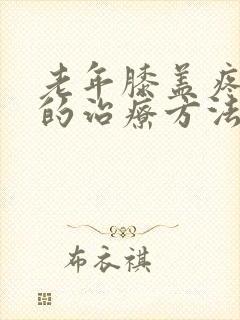 老年膝盖疼
的治疗方法
布衣祺